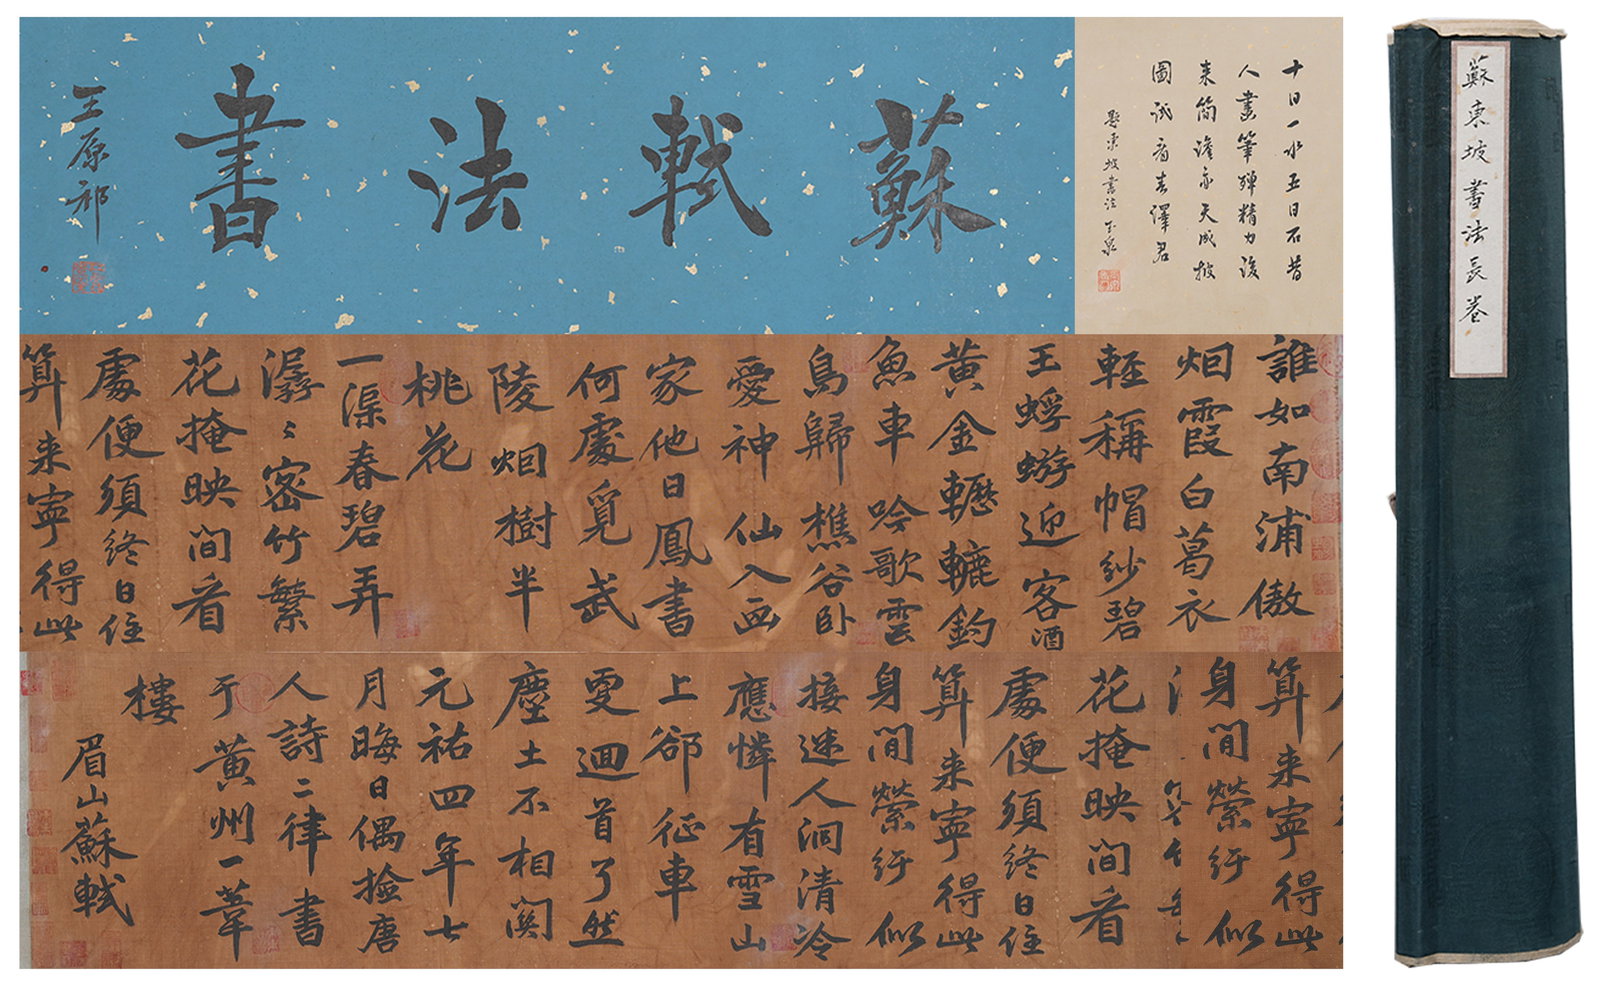 蘇軾法書
王原祁
十日一水五日石昔
人畫筆殫精力後
来簡澹亦天成披
圖試看春澤君
題東坡書法
誰如南浦傲
烟霞白葛衣
輕稱帽紗碧
玉蜉蝣迎客酒
黄金轣轆釣
魚車吟歌雲
鳥歸樵谷卧
愛神仙入画
家他日鳳書
何處覓武
陵烟樹半
桃花
一渠春碧弄
潺〻密竹繁
花掩映间看
處便須终日住
算来寧得此
算来寧得此
身閒縈纡似
花掩映间看
處便須终日住
算来寧得此
身閒縈纡似
接迷人洞清泠
應憐有雪山
上郤征車
更迴首了然
塵土不相関
元祐四年七
月晦日偶撿唐
人詩二律書
于黄州一葦
樓
眉山蘇軾
蘇東坡書法長卷